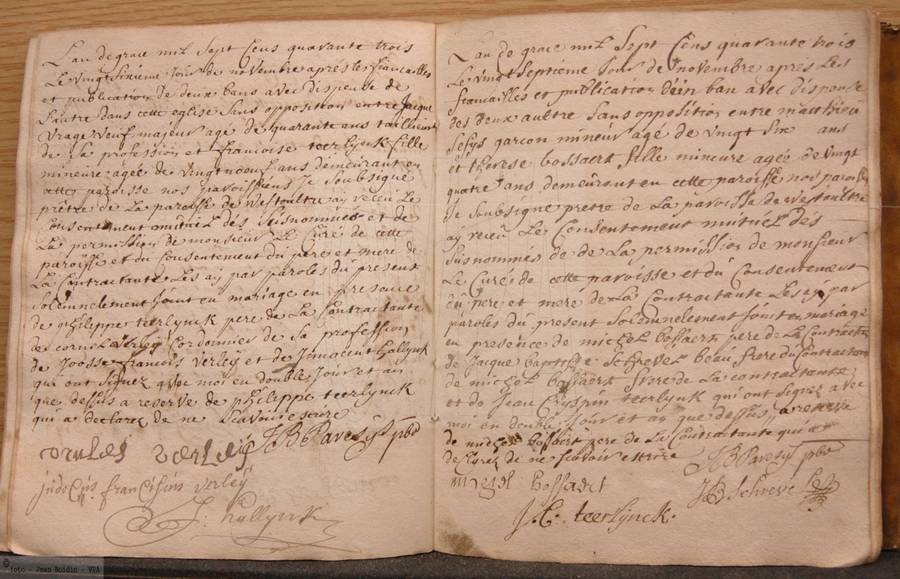 L'an de grace mil Sept Cens quarante trois
Le vingt Sixieme Jour de novembre aprés les fiancailles
et publication de deux bans avec dispense de
l'autre dans cette eglise Sans opposition entre Jacque
Verag veuf majeur agé de quarante ans tailleur
de Sa profession et francoise teerlynck fille
mineure agée de vingt noeuf ans demeurant en
cette paroisse nos paroissiens Je Soubsigné
prêtre de La paroisse de Westoultre ay receu Le
Consentement mutuel des Susnommés et de
La permission de monsieur Le Curé de cette
paroisse et du Consentement du pere et mere de
La Contractante Les ay par paroles du present
Solemnelement Joint en mariage en presence
de philippe teerlynck pere de La Contractante
de Cornel Verley Cordonnier de Sa profession
de Joosse francois Verley et de Innocent hallynk
qui ont Signez avec moi en double Jour et an
que dessus a reserve de philippe teerlynck
qui a declarez de ne Scavoir escrire
J B Pavesy pbr
verley
Judocus franciscus verley
J: hallynck
L'an de grace mil Sept Cens quarante trois
Le vingt Septième Jour de novembre aprés Les
fiancailles et publication d'un ban avec dispense
des deux aultre Sans opposition entre matthieu
garcon mineur agé de vingt Six ans
et therese bossaert fille mineure agée de vingt
quatre ans demeurant en cette paroisse nos paroiss
Je Soubsigné pretre de La paroisse de Westoultre
ay receu Le Consentement mutuel des
Susnommés de de La permission de monsieur
Le Curés de cette paroisse et du Consentement
du pere et mere de La Contractante Les ay par
paroles du present Solemnelement Joint en mariage
en presence de michel bossaert pere de La Contracta
de Jacque baptiste Schrevel beau frere du Contractant
de michel bossaert frere de La contractante
et de Jean Crispin teerlynk qui ont Signez avec
moi en double Jour et an que dessus a reserve
de michel bossaert pere de La Contractante qui a
declarez de ne Scavoir escrire
J B Pavesy pbr
michel bossaert
J B Schrevel
J. C. teerlynck.
© foto - Jean Boidin - VVA